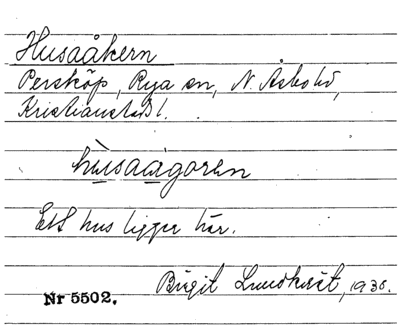 Husaåkern
Perskóp, Rya sn, N. Åsbo hd,
Kristianstads l.
hùsaågoren
Ett hus ligger här.
Birgit Lundkvist, 1930.
Nr 5502.